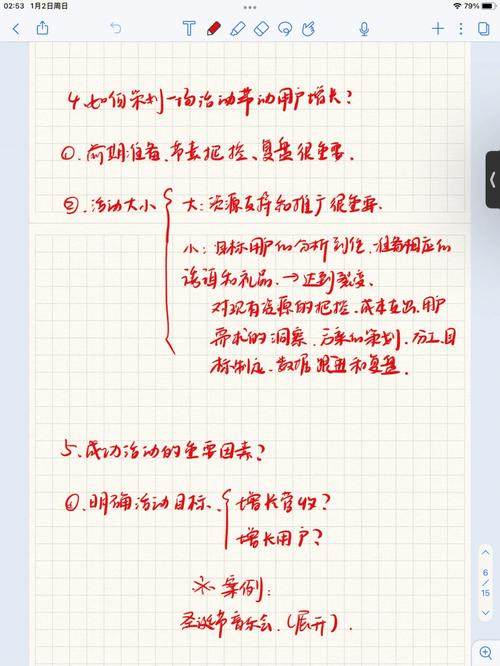 02:53 1月2日周日
79%
4.如何策划一场活动带动用户增长?
①.前期准备、节奏把控、复盘很重要.
②.活动大小
大:资源支持和推广很重要.
小:目标用户的分析到位.准备相应的
诱饵和礼品.→达到裂变.
对现有资源的把控、成本支出、用户
需求的洞察、方案的策划、分工、目
标制定、数据跟进和复盘.
5.成功活动的重要因素?
①.明确活动目标、
增长营收?
增长用户?
※案例:
圣诞节音乐会.(展开).
6
15